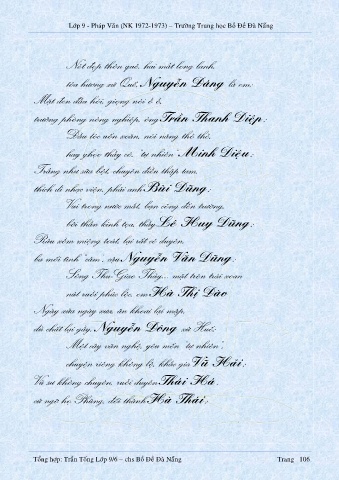 Lớp 9 - Pháp Văn (NK 1972-1973) – Trường Trung học Bồ Đề Đà Nẵng
Nét đẹp thôn quê, hai mắt long lanh,
tỏa hương xứ Quế, Nguyễn Dàng là em;
Mặt đen dầu hôi, giọng nói ê ê,
trưởng phòng nông nghiệp, ông Trần Thanh Diệp;
Đầu tóc uốn xoăn, nói năng thỏ thẻ,
hay ghẹo thầy cô, "tự nhiên" Minh Diệu;
Trắng như sữa bột, chuyên diễn thấp tam,
thích đi nhạc viện, phải anh Bùi Dũng;
Vai trong nước mắt, bạn cùng đến trường,
bởi thân kinh tọa, thầy Lê Huy Dũng;
Râu xồm miệng toát, lại rất có duyên,
ba mối tình "câm", cậu Nguyễn Văn Dũng;
Sông Thu Giao Thủy... mặt tròn trái xoan
nát ruổi pháo lộc, em Hà Thị Đào
Ngày xửa ngày xưa, ăn khoai lai mập,
dù chất lại gầy, Nguyễn Đông xứ Huế;
Một cây văn nghệ, yêu mến "tự nhiên",
chuyện riêng không lộ, khảo gia Vũ Hải;
Vô sư không chuyên, ruổi duyên Thái Hà.
cứ ngỡ họ Phùng, đổi thành Hà Thái;
Tổng hợp: Trần Tống Lớp 9/6 – chs Bồ Đề Đà Nẵng
Trang 106